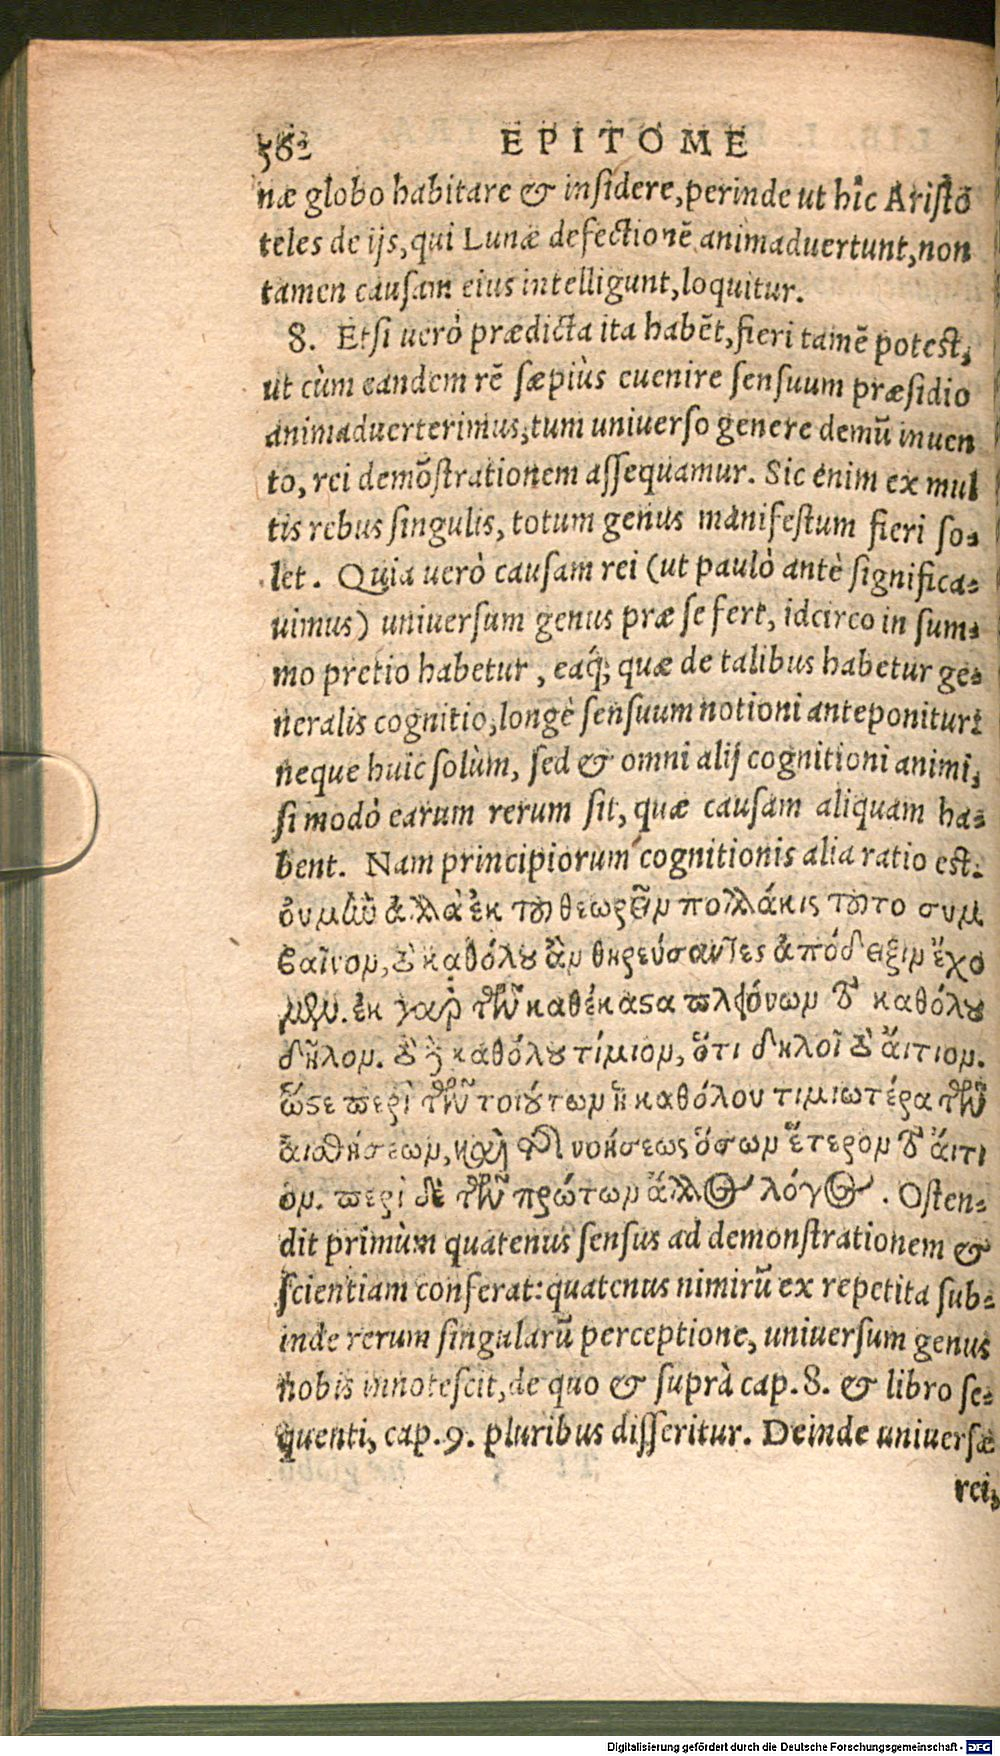 562 EPITOME
næ globo habitare & insidere, perinde ut hîc Aristo
teles de ijs, qui Lunæ defectionẽ animaduertunt, non
tamen causam eius intelligunt, loquitur.
8. Etsi uerò prædicta ita habẽt, fieri tamẽ potest,
ut cùm eandem rẽ sæpiùs euenire sensuum præsidio
animaduerterimus, tum uniuerso genere demũ inuen
to, rei demõstrationem assequamur. Sic enim ex mul
tis rebus singulis, totum genus manifestum fieri so-
let. Quia uerò causam rei (ut paulò antè significa-
uimus) uniuersum genus præ se fert, idcirco in sum-
mo pretio habetur, eaq́; quæ de talibus habetur ge-
neralis cognitio, longè sensuum notioni anteponitur:
neque huic solùm, sed & omni alij cognitioni animi,
si modò earum rerum sit, quæ causam aliquam ha-
bent. Nam principiorum cognitionis alia ratio est:
οὐ μὴν ἀλλὰ ἐκ τοῦ θεωρεῖν πολλάκις τοῦτο συμ
βαῖνον, τὸ καθόλου ἂν θηρεύσαντες ἀπόδειξιν ἔχο
μεν. ἐκ γὰρ τῶν καθέκαστα πλειόνων τὸ καθόλου
δῆλον. τὸ δὲ καθόλου τίμιον, ὅτι δηλοῖ τὸ αἴτιον.
ὥστε περὶ τῶν τοιούτων ἡ καθόλου τιμιωτέρα τῶν
αἰσθήσεων, καὶ τῆς νοήσεως ὅσων ἕτερον τὸ αἴτι
ον. περὶ δὲ τῶν πρώτων ἄλλος λόγος. Osten-
dit primùm quatenus sensus ad demonstrationem &
scientiam conferat: quatenus nimirũ ex repetita sub-
inde rerum singularũ perceptione, uniuersum genus
nobis innotescit, de quo & suprà cap. 8. & libro se-
quenti, cap. 9. pluribus disseritur. Deinde uniuersæ
rei,
Digitalisierung gefördert durch die Deutsche Forschungsgemeinschaft - DFG